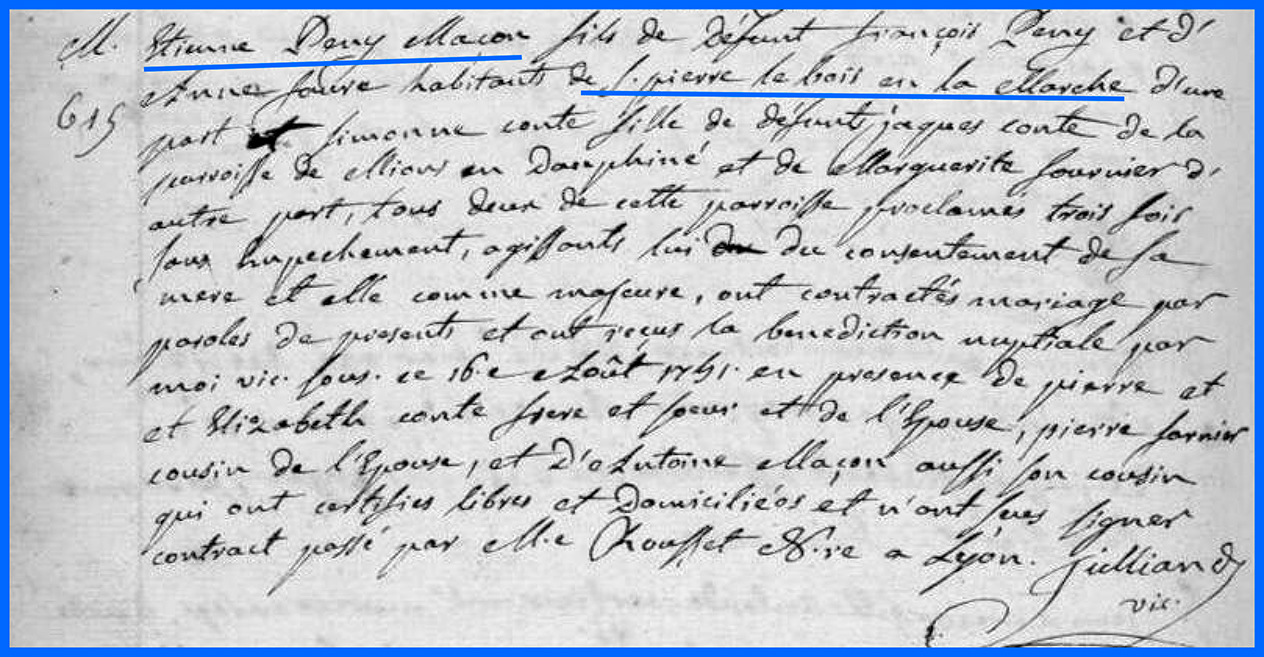 M. Etienne Peny Maçon fils de défunt françois Peny et d'
615 Anne faure habitants de s. pierre le bois en la Marche d'une
part et simonne conte fille de défunts jaques conte de la
parroisse de Mions en Dauphiné et de Marguerite fournier d'
autre part, tous deux de cette parroisse proclamés trois fois
sans Empechement, agissants lui du consentement de sa
mere et elle comme majeure, ont contractés mariage par
paroles de presents et ont reçus la benediction nuptiale par
moi vic. sous. ce 16.e Août en presence de pierre et
et Elizabeth conte frere et soeur et de l'Epouse, pierre fornier
cousin de l'Epouse, et d'Antoine Maçon aussi son cousin
qui ont certifies libres et Domiciliéos et n'ont sçus signer
contract passé par M.e Rousset N.re a Lyon. Julliand
vic.